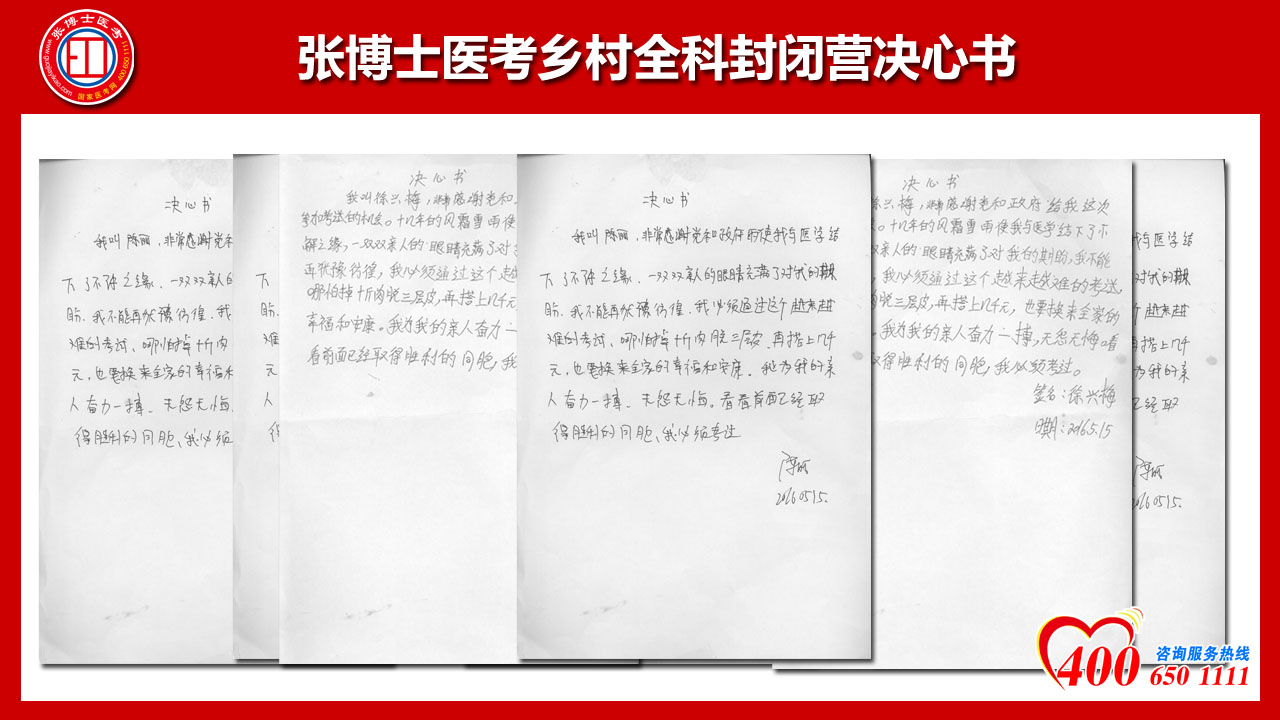 张博士医考乡村全科封闭营决心书
张博士医考
国家医考网
决心书
我叫陈丽，非常感谢党和
下了不解之缘、一双双亲人的
盼、我不能再犹豫彷徨、我
难的考试、哪怕掉十斤肉
元，也要换来全家的幸福和
人奋力一搏、无怨无悔
得胜利的同胞、我必须
决心书
我叫徐兴梅，非常感谢党和
参加考试的机会。十几年的风霜雪雨使
解之缘，一双双亲人的眼睛充满了对
再犹豫彷徨，我必须通过这个越
哪怕掉十斤肉脱三层皮，再搭上几千元
幸福和安康。我为我的亲人奋力一
看前面已经取得胜利的同胞，我
决心书
我叫陈丽，非常感谢党和政府而使我与医学结
下了不解之缘、一双双亲人的眼睛充满了对我的期
盼、我不能再犹豫彷徨、我必须通过这个越来越
难的考试、哪怕掉十斤肉脱三层皮、再搭上几千
元，也要换来全家的幸福和安康、我为我的亲
人奋力一搏、无怨无悔。看看前面已经取
得胜利的同胞、我必须考过
陈丽
20160515.
决心书
徐兴梅，非常感谢党和政府给我这次
。十几年的风霜雪雨使我与医学结下了不
双亲人的眼睛充满了对我的期盼，我不能
，我必须通过这个越来越难的考试，
肉脱三层皮，再搭上几千元，也要换来全家的
。我为我的亲人奋力一搏，无怨无悔看
取得胜利的同胞，我必须考过。
签名：徐兴梅
日期：2016.5.15
我与医学结
对我的期
越来越
再搭上几千
为我的亲
已经取
陈丽
20160515.
400
咨询服务热线
650 1111